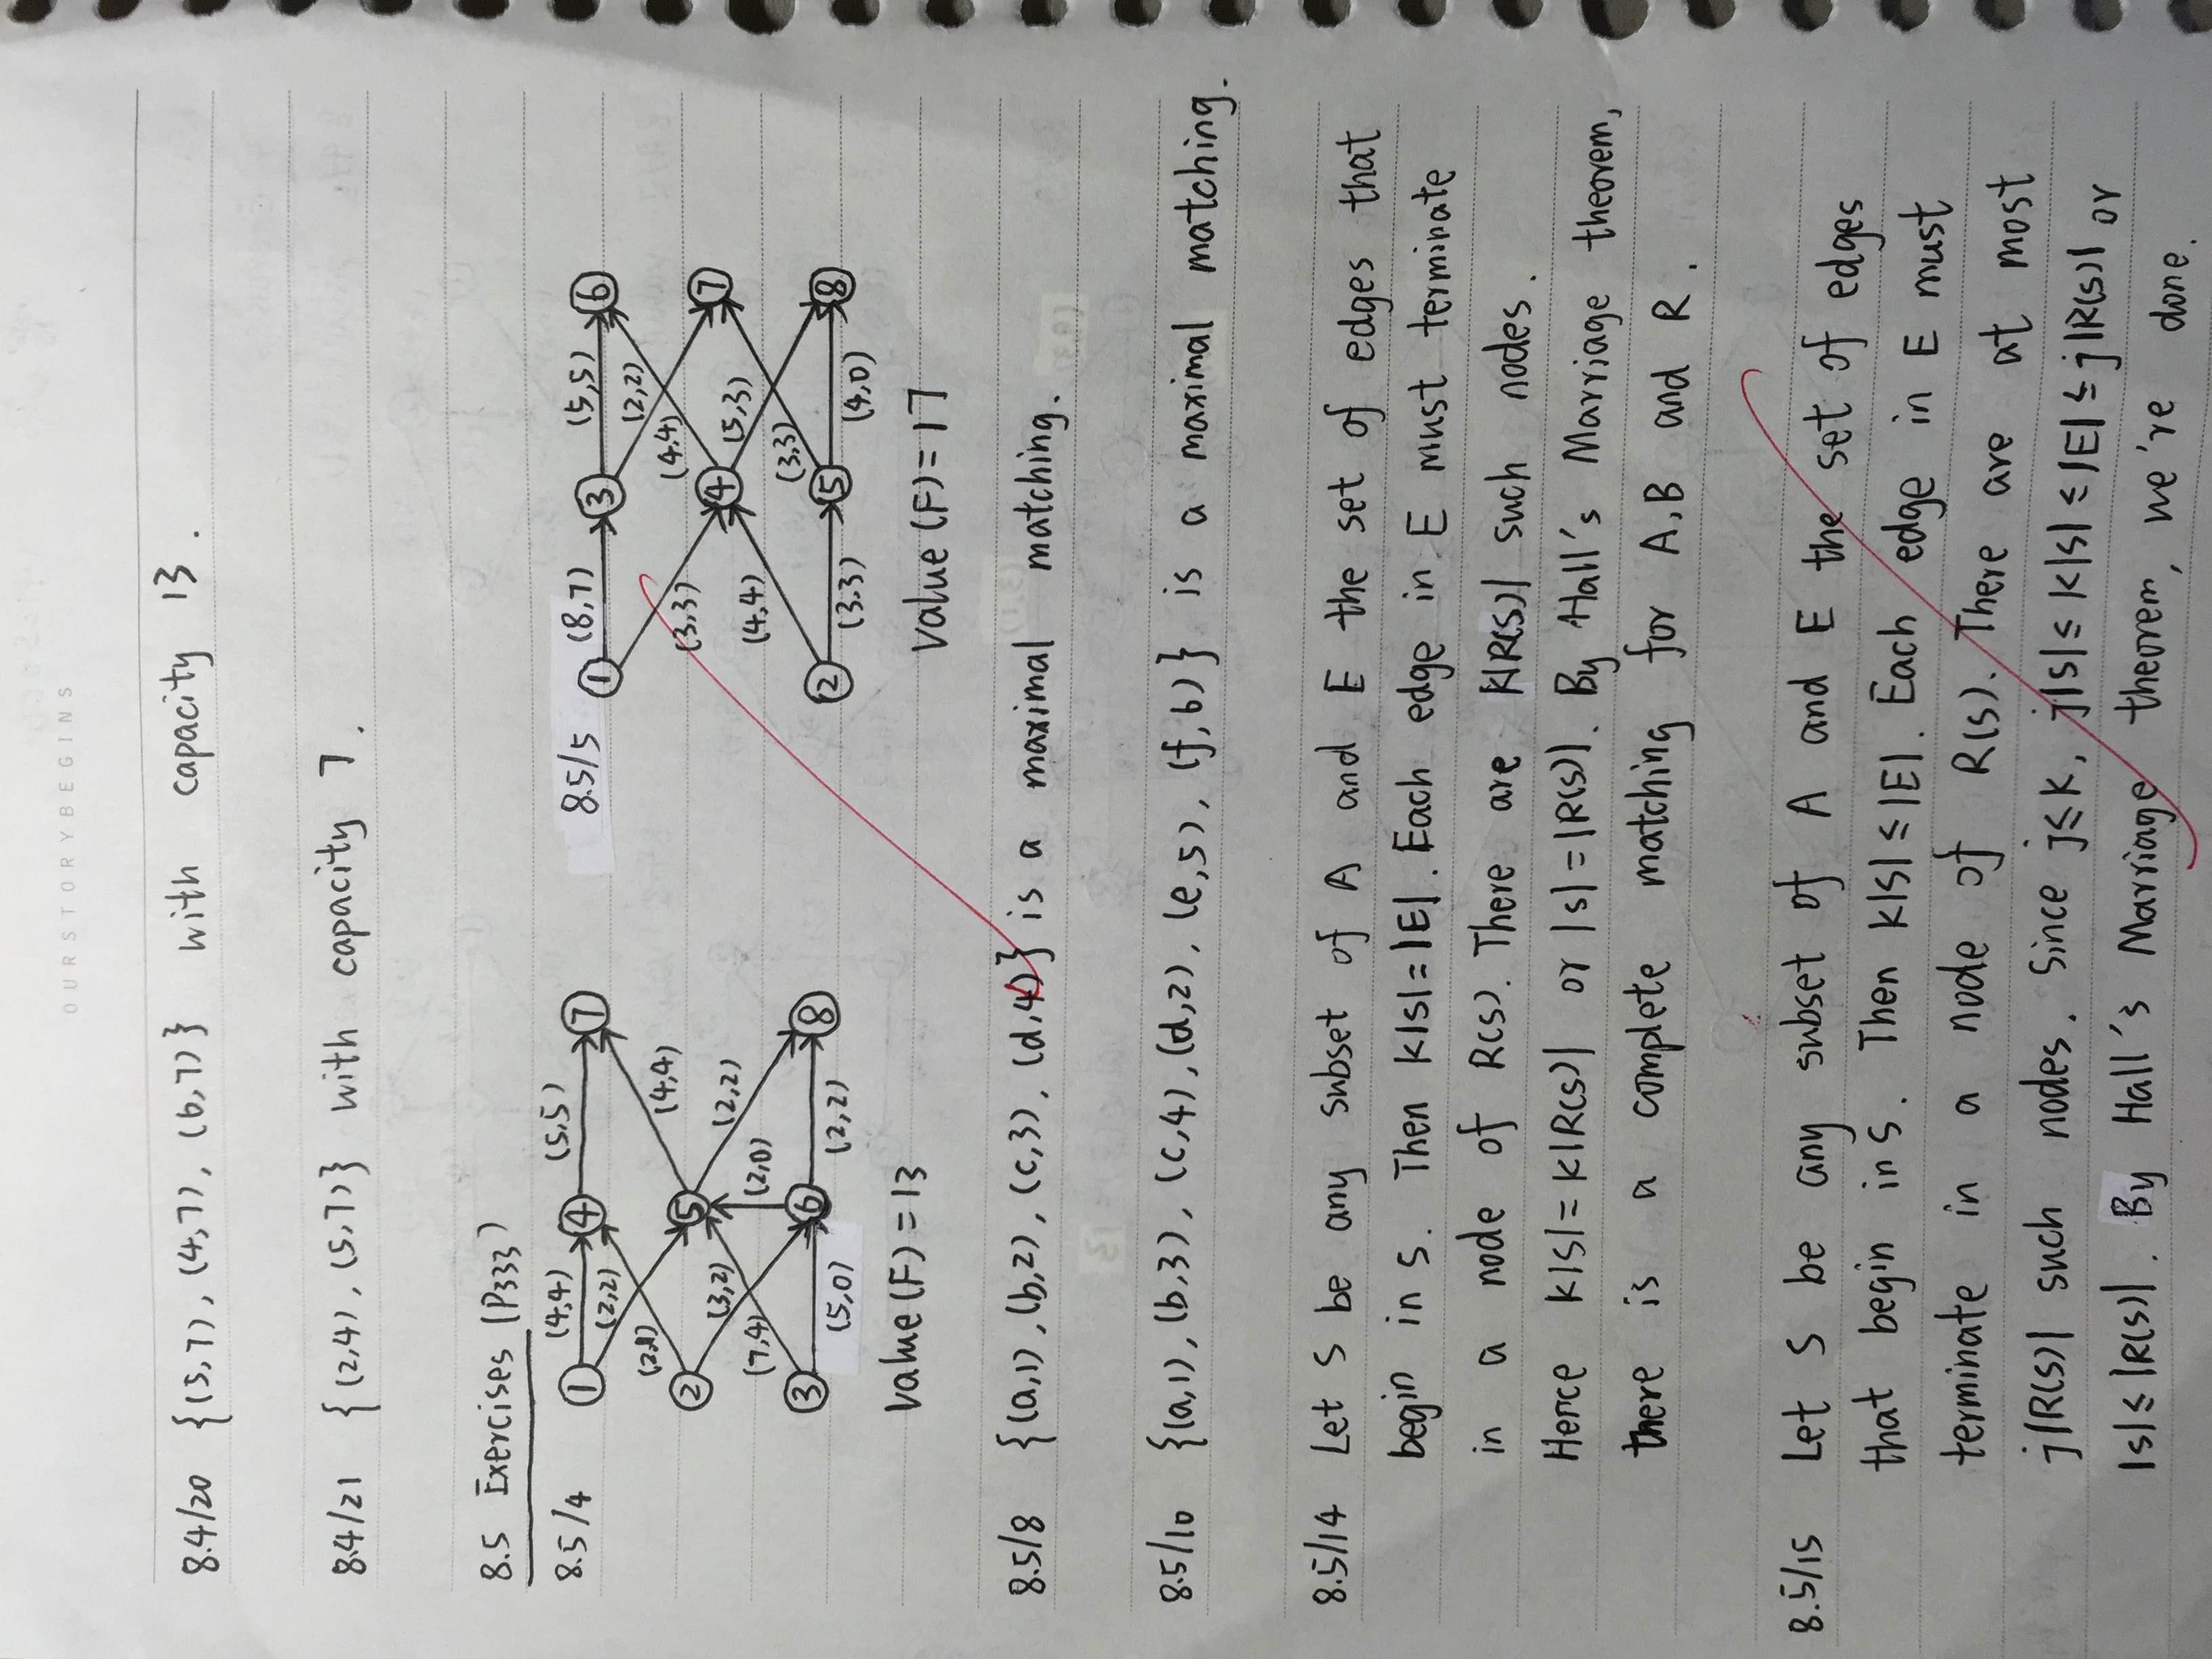 OURSTORYBEGINS
8.4/20 {(5,7), (4,7), (6,7)} with capacity 13.
8.4/21 {(2,4), (5,7)} with capacity 7.
8.5 Exercises (P333)
8.5/4
1 (4,4) 4 (5,5) 7
(2,2)
(2,1)
2 5 (4,4)
(3,2) (2,2)
(7,4) (2,0)
3 6 8
(5,0) (2,2)
Value (F) = 13
8.5/5
1 (8,7) 3 (5,5) 6
(2,2)
(3,3) (4,4)
4 7
(4,4) (5,3)
(3,3)
2 5 8
(3,3) (4,0)
Value (F) = 17
8.5/8 {(a,1), (b,2), (c,3), (d,4)} is a maximal matching.
8.5/10 {(a,1), (b,3), (c,4), (d,2), (e,5), (f,6)} is a maximal matching.
8.5/14 Let S be any subset of A and E the set of edges that
begin in S. Then k|S|=|E|. Each edge in E must terminate
in a node of R(S). There are k|R(S)| such nodes.
Hence k|S|=k|R(S)| or |S|=|R(S)|. By Hall's Marriage theorem,
there is a complete matching for A,B and R.
8.5/15 Let S be any subset of A and E the set of edges
that begin in S. Then k|S| ≤ |E|. Each edge in E must
terminate in a node of R(S). There are at most
j|R(S)| such nodes. Since j≤k, j|S| ≤ k|S| ≤ |E| ≤ j|R(S)| or
|S| ≤ |R(S)|. By Hall's Marriage theorem, we're done.